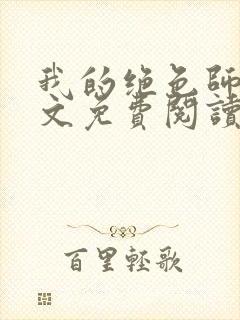 我的绝色師
文免費閱讀
百里輕歌